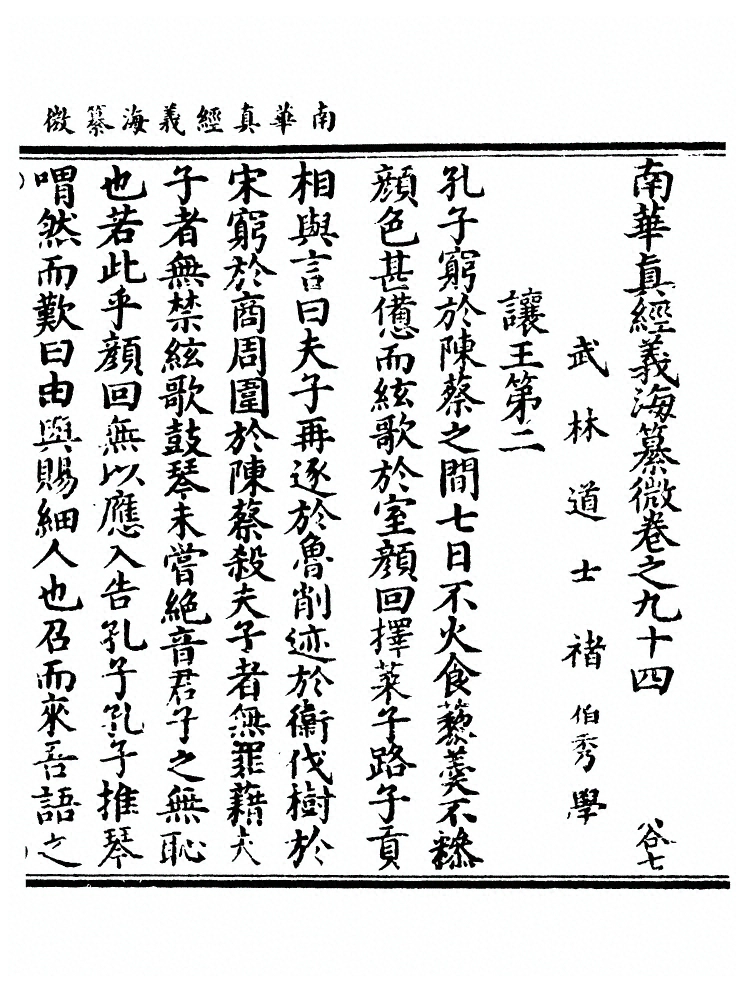 南華真經義海纂微
南華真經義海纂微卷之九十四 谷七
武林道士褚伯秀學
讓王第二
孔子窮於陳蔡之間七日不火食藜羹不糝
顔色甚憊而絃歌於室顔回擇菜子路子貢
相與言曰夫子再逐於魯削迹於衛伐樹於
宋窮於商周圍於陳蔡殺夫子者無罪藉夫
子者無禁絃歌鼓琴未嘗絶音君子之無恥
也若此乎顔回無以應入告孔子孔子推琴
喟然而歎曰由與賜細人也召而來吾語之